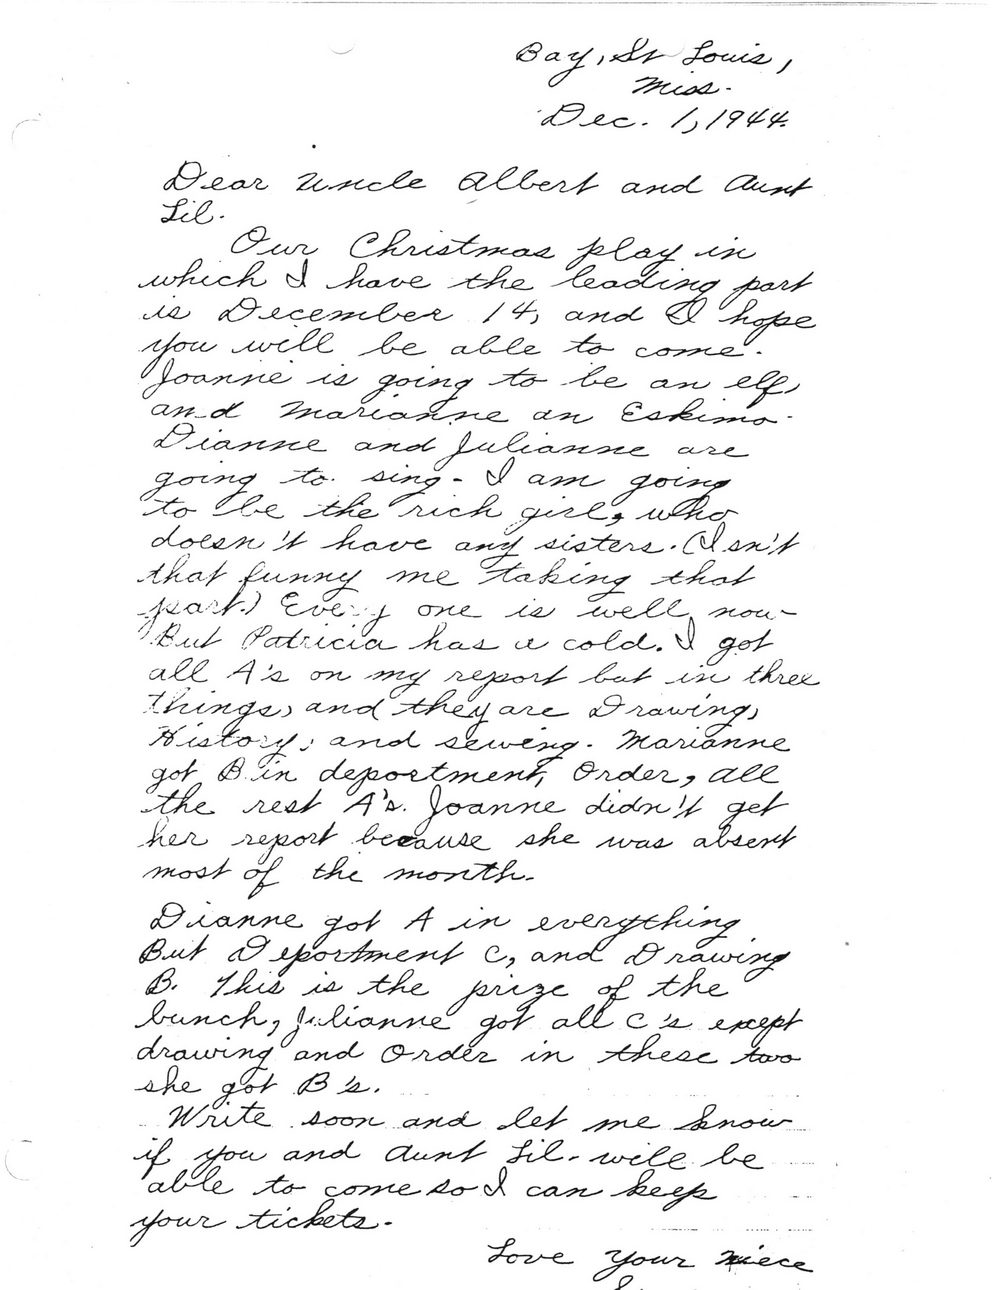 Bay, St Louis,
Miss.
Dec. 1, 1944.
Dear Uncle Albert and Aunt
Lil.
Our Christmas play in
which I have the leading part
is December 14, and I hope
you will be able to come.
Joanne is going to be an elf,
and Marianne an Eskimo.
Dianne and Julianne are
going to sing. I am going
to be the rich girl, who
doesn't have any sisters. (Isn't
that funny me taking that
part.) Every one is well now
But Patricia has a cold. I got
all A's on my report but in three
things, and they are Drawing,
History, and sewing. Marianne
got B in deportment, Order, all
the rest A's. Joanne didn't get
her report because she was absent
most of the month.
Dianne got A in everything
But Deportment C, and Drawing
B. This is the prize of the
bunch, Julianne got all C's except
drawing and order in these two
she got B's.
Write soon and let me know
if you and Aunt Lil. will be
able to come so I can keep
your tickets.
Love Your niece